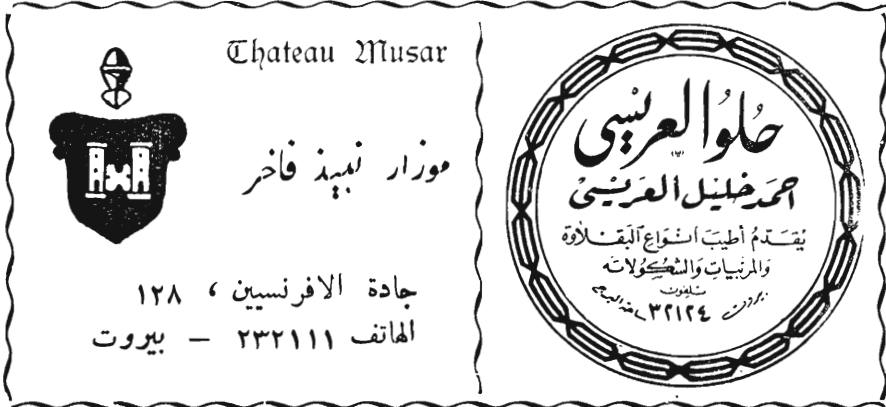 Chateau Musar
موزار نبيذ فاخر
جادة الافرنسيين ، ١٢٨
الهاتف ٢٣٢١١١ — بيروت
حلو العريسي
احمد خليل العريسي
يقدم أطيب انواع البقلاوة
والمربيات والشكولاته
تلفون
بيروت ٣٢١٢٤